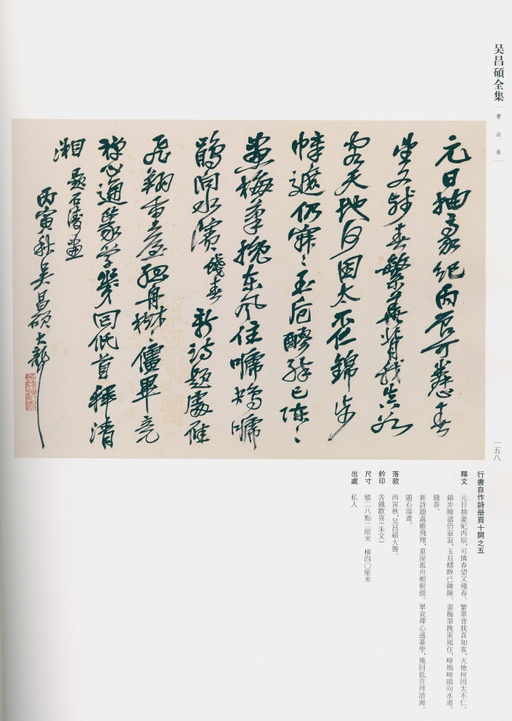 吴昌碩全集
書法卷
元日抽豪紀丙辰可憐春
望又殘春繁華背我真如
客天地何因太不仁錦步
幛遮仍寂〻玉卮醪醉已陳〻
畫梅筆挽東風住啼鴂啼
鵑向水濱殘春新詩題處雁
飛翔重疊孤舟樹〻僵畢竟
禪心通篆學幾回低首拜清
湘題石濤畫
丙寅秋吴昌碩大聾
一五八
行書自作詩册頁十開之五
釋文
元日抽豪紀丙辰，可憐春望又殘春。繁華背我真如客，天地何因太不仁。
錦步幛遮仍寂寂，玉卮醪醉已陳陳。畫梅筆挽東風住，啼鴂啼鵑向水濱。
殘春。
新詩題處雁飛翔，重疊孤舟樹樹僵。畢竟禪心通篆學，幾回低首拜清湘。
題石濤畫。
落款
丙寅秋，吴昌碩大聾。
鈐印
苦鐵歡喜（朱文）
尺寸
縱二八點二厘米 橫四〇厘米
出處
私人